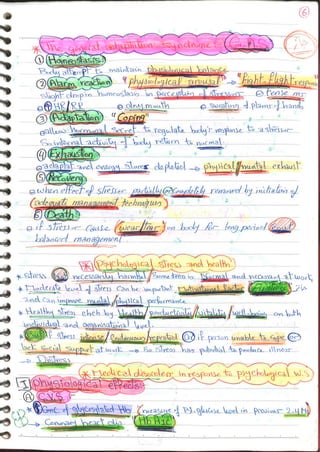 6
* The general adaptation syndrome: G.A.S
① Homeostasis:
Body attempt to maintain physiological balance
② Alarm reaction "physiological arousal" → Fight flight response
slight drop in homeostasis in perception of stressors Tense ms
↑ HR/RR dry mouth sweating of palms of hands
③ Adaptation "Coping"
allow hormonal secret. to regulate body's response to a stressor
So internal activity of body return to normal
④ Exhaustion
adaptat. and energy stores depleted → physical/mental exhaust
⑤ Recovery
when effect of stressor partially/completely removed by initiation of
adequate management techniques
⑥ Death
if stressor cause wear/tear on body for long period
balanced management
* Psychological stress and health:
stress necessarily harmful, some stress is normal and necessary at work
Moderate level of stress can be important motivational factor
and can improve mental/physical performance
Healthy stress by health, productivity, well-being on both
individual and organizational level
But if stress intense, continuous, repeated or if person unable to cope or
lack social support at work → So stress has potential to produce illness
→ Distress
* Medical disorders in response to psychological W.S
I Physiological effects:
A C.V.S
of glycosylated Hb (measure of Bl. glucose level in previous 2-4 Ms
→ Coronary heart dis. Hb A1c